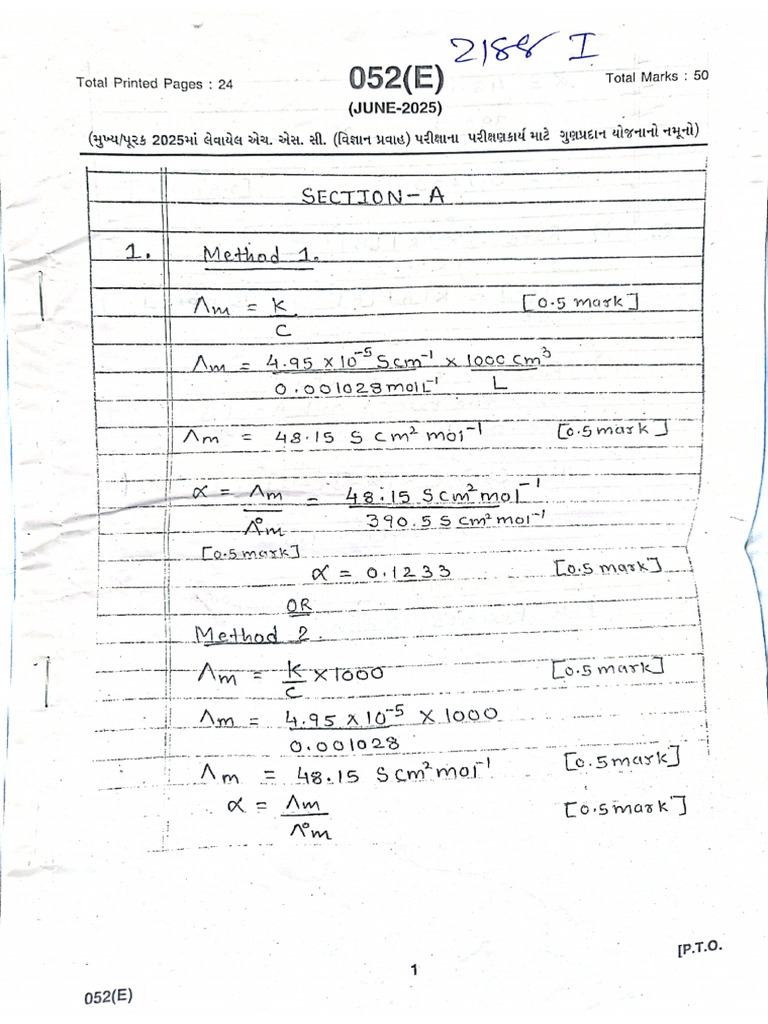 2188 I
Total Printed Pages : 24
052(E)
Total Marks : 50
(JUNE-2025)
(મુખ્ય/પૂરક 2025માં લેવાયેલ એચ. એસ. સી. (વિજ્ઞાન પ્રવાહ) પરીક્ષાના પરીક્ષણકાર્ય માટે ગુણપ્રદાન યોજનાનો નમૂનો)
SECTION-A
1. Method 1.
Λm = K [0.5 mark]
C
Λm = 4.95 × 10⁻⁵ S cm⁻¹ × 1000 cm³
0.001028 mol L⁻¹ L
Λm = 48.15 S cm² mol⁻¹ [0.5 mark]
α = Λm = 48.15 S cm² mol⁻¹
Λ°m 390.5 S cm² mol⁻¹
[0.5 mark]
α = 0.1233 [0.5 mark]
OR
Method 2.
Λm = K × 1000 [0.5 mark]
C
Λm = 4.95 × 10⁻⁵ × 1000
0.001028
Λm = 48.15 S cm² mol⁻¹ [0.5 mark]
α = Λm [0.5 mark]
Λ°m
[P.T.O.
1
052(E)